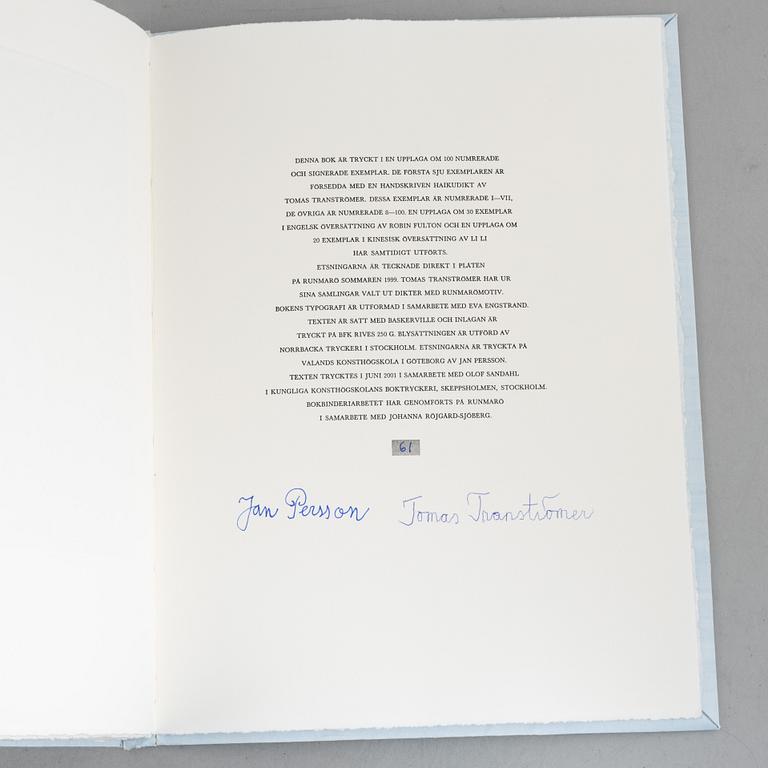 DENNA BOK ÄR TRYCKT I EN UPPLAGA OM 100 NUMRERADE
OCH SIGNERADE EXEMPLAR. DE FÖRSTA SJU EXEMPLAREN ÄR
FÖRSEDDA MED EN HANDSKRIVEN HAIKUDIKT AV
TOMAS TRANSTRÖMER. DESSA EXEMPLAR ÄR NUMRERADE I—VII,
DE ÖVRIGA ÄR NUMRERADE 8—100. EN UPPLAGA OM 30 EXEMPLAR
I ENGELSK ÖVERSÄTTNING AV ROBIN FULTON OCH EN UPPLAGA OM
20 EXEMPLAR I KINESISK ÖVERSÄTTNING AV LI LI
HAR SAMTIDIGT UTFÖRTS.
ETSNINGARNA ÄR TECKNADE DIREKT I PLÅTEN
PÅ RUNMARÖ SOMMAREN 1999. TOMAS TRANSTRÖMER HAR UR
SINA SAMLINGAR VALT UT DIKTER MED RUNMARÖMOTIV.
BOKENS TYPOGRAFI ÄR UTFORMAD I SAMARBETE MED EVA ENGSTRAND.
TEXTEN ÄR SATT MED BASKERVILLE OCH INLAGAN ÄR
TRYCKT PÅ BFK RIVES 250 G. BLYSÄTTNINGEN ÄR UTFÖRD AV
NORRBACKA TRYCKERI I STOCKHOLM. ETSNINGARNA ÄR TRYCKTA PÅ
VALANDS KONSTHÖGSKOLA I GÖTEBORG AV JAN PERSSON.
TEXTEN TRYCKTES I JUNI 2001 I SAMARBETE MED OLOF SANDAHL
I KUNGLIGA KONSTHÖGSKOLANS BOKTRYCKERI, SKEPPSHOLMEN, STOCKHOLM.
BOKBINDERIARBETET HAR GENOMFÖRTS PÅ RUNMARÖ
I SAMARBETE MED JOHANNA RÖJGÅRD-SJÖBERG.
61
Jan Persson Tomas Tranströmer